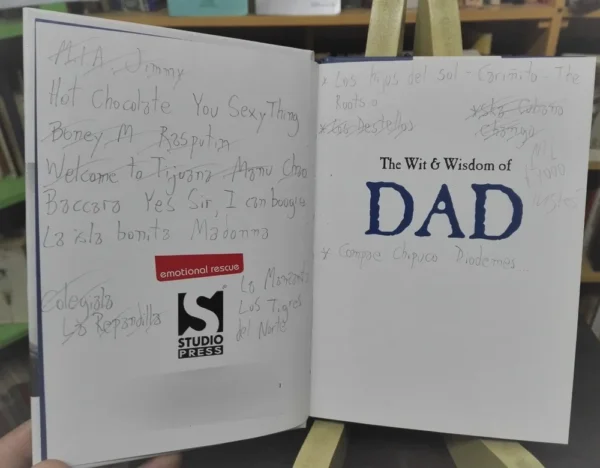 M.I.A. Jimmy
Hot Chocolate You Sexy Thing
Boney M Rasputin
Welcome to Tijuana Manu Chao
Baccara Yes Sir, I can boogie
La isla bonita Madonna
emotional rescue
Colegiala
La Repandilla
S
STUDIO
PRESS
La Manzanita
Los Tigres
del Norte
* Los Hijos del sol - Cariñito - The
Roots o
* Los Destellos
Isla Cubana
Chango
The Wit & Wisdom of
DAD
* Compae Chipuco Diodemes...